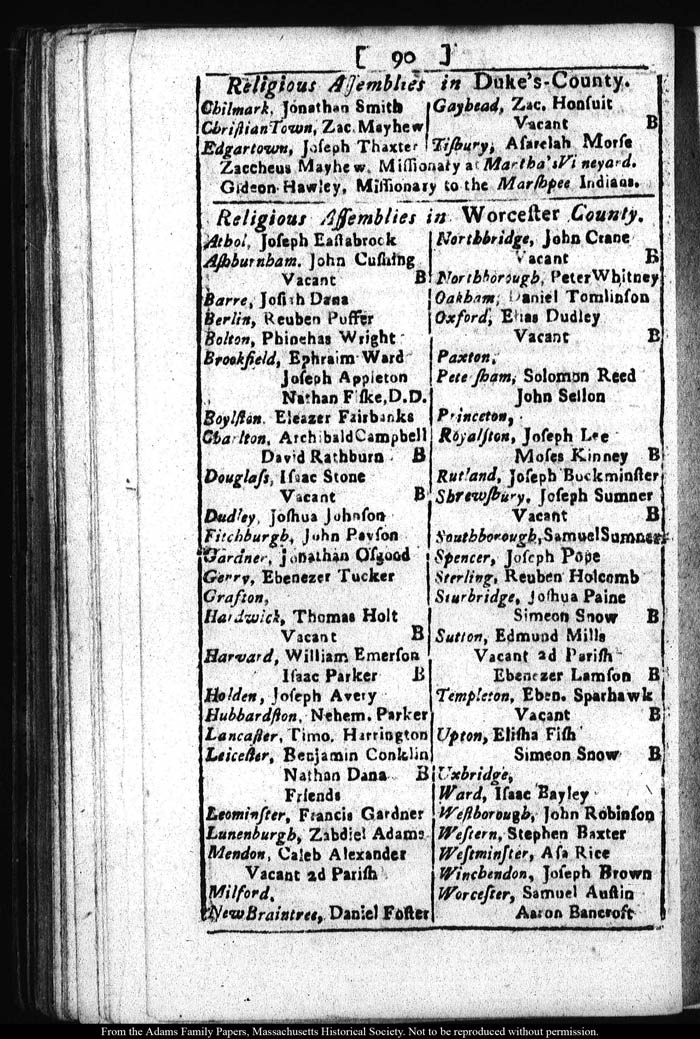 [ 90 ]
Religious Aſſemblies in Duke's-County.
Chilmark, Jonathan Smith
ChriſtianTown, Zac. Mayhew
Edgartown, Joſeph Thaxter
Gayhead, Zac. Honſuit
Vacant B
Tiſbury, Aſarelah Morſe
Zaccheus Mayhew, Miſſionary at Martha'sVineyard.
Gideon Hawley, Miſſionary to the Marſhpee Indians.
Religious Aſſemblies in Worceſter County.
Athol, Joſeph Eaſtabrook
Aſhburnham, John Cuſhing
Vacant B
Barre, Joſiah Dana
Berlin, Reuben Puffer
Bolton, Phinehas Wright
Brookfield, Ephraim Ward
Joſeph Appleton
Nathan Fiſke, D.D.
Boylſton, Eleazer Fairbanks
Charlton, Archibald Campbell
David Rathburn B
Douglaſs, Iſaac Stone
Vacant B
Dudley, Joſhua Johnſon
Fitchburgh, John Payſon
Gardner, Jonathan Oſgood
Gerry, Ebenezer Tucker
Grafton,
Hardwick, Thomas Holt
Vacant B
Harvard, William Emerſon
Iſaac Parker B
Holden, Joſeph Avery
Hubbardſton, Nehem. Parker
Lancaſter, Timo. Harrington
Leiceſter, Benjamin Conklin
Nathan Dana B
Friends
Leominſter, Francis Gardner
Lunenburgh, Zabdiel Adams
Mendon, Caleb Alexander
Vacant 2d Pariſh
Milford,
NewBraintree, Daniel Foſter
Northbridge, John Crane
Vacant B
Northborough, Peter Whitney
Oakham, Daniel Tomlinſon
Oxford, Elias Dudley
Vacant B
Paxton,
Peterſham, Solomon Reed
John Sellon
Princeton,
Royalſton, Joſeph Lee
Moſes Kinney B
Rutland, Joſeph Buckminſter
Shrewſbury, Joſeph Sumner
Vacant B
Southborough, Samuel Sumner
Spencer, Joſeph Pope
Sterling, Reuben Holcomb
Sturbridge, Joſhua Paine
Simeon Snow B
Sutton, Edmund Mills
Vacant 2d Pariſh
Ebenezer Lamſon B
Templeton, Eben. Sparhawk
Vacant B
Upton, Eliſha Fiſh
Simeon Snow B
Uxbridge,
Ward, Iſaac Bayley
Weſtborough, John Robinſon
Weſtern, Stephen Baxter
Weſtminſter, Aſa Rice
Winchendon, Joſeph Brown
Worceſter, Samuel Auſtin
Aaron Bancroft
From the Adams Family Papers, Massachusetts Historical Society. Not to be reproduced without permission.